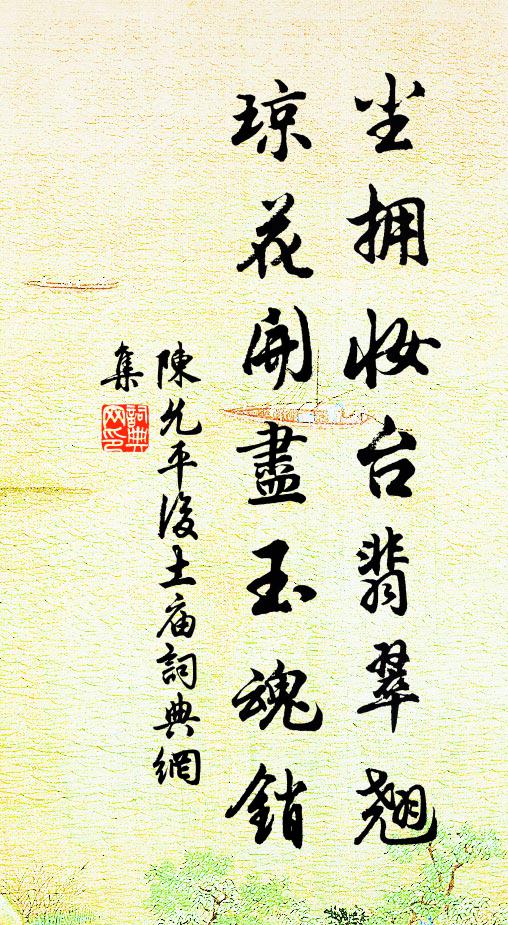 坐拥妆台翡翠翘
琼花開盡玉魂銷
陳允平後土庙詞典網
集
詞典网印